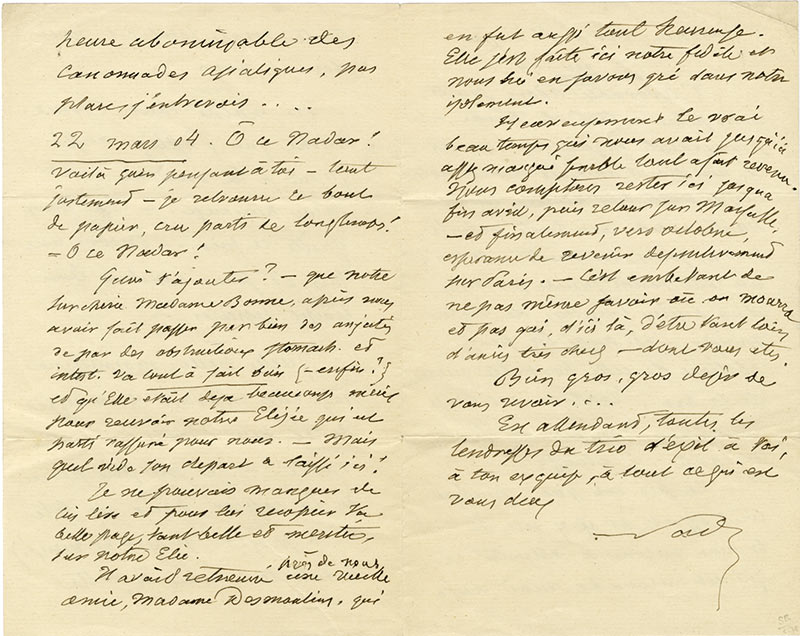 heure abominable des
canonnades asiatiques, pas
places j'entrevois . . . .
22 mars 04. Ô ce Nadar!
Voilà qu'en pensant à toi – tout
justement – je retrouve ce bout
de papier, cru parti de longtemps!
– Ô ce Nadar!
Quoi t'ajouter? – que notre
surchérie Madame Bonne, après nous
avoir fait passer par bien des anxiétés
de par des obstructions stomach. et
intest. va tout à fait bien (– enfin!)
et qu'Elle était déjà beaucoup mieux
pour recevoir notre Elisée qui est
parti rassuré pour nous. – Mais
quel vide son départ a laissé ici!
Je ne pouvais manquer de
lui lire et pour lui recopier ta
belle page, tant belle et méritée,
sur notre Elie.
Il avait retrouvé près de nous une vieille
amie, Madame Desmoulins, qui
en fut aussi tout heureuse.
Elle s'est faite ici notre fidèle et
nous lui en savons gré dans notre
isolement.
Heureusement le vrai
beau temps qui nous avait jusqu'ici
assez manqué semble tout à fait revenu.
Nous comptons rester ici jusqu'à
fin avril, puis retour sur Marseille,
– et finalement, vers octobre,
espérance de revenir définitivement
sur Paris. – C'est embêtant de
ne pas même savoir où on mourra
et pas gai, d'ici là, d'être tant loin
d'amis très chers – dont vous êtes.
Bien gros, gros désir de
vous revoir . . . .
En attendant, toutes les
tendresses du trio d'exil à toi,
à ton exquise, à tout ce qui est
vous deux
Nadar